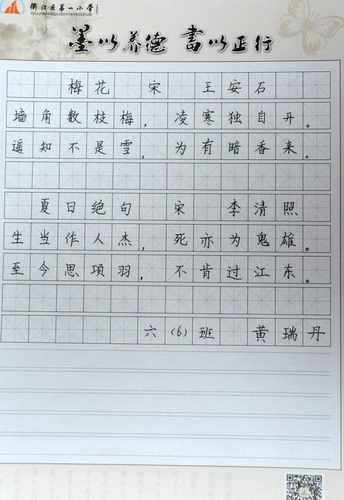 衢江区第一小学
墨以养德 書以正行
梅花 宋 王安石
墙角数枝梅，凌寒独自开。
遥知不是雪，为有暗香来。
夏日绝句 宋 李清照
生当作人杰，死亦为鬼雄。
至今思项羽，不肯过江东。
六(6)班 黄瑞丹